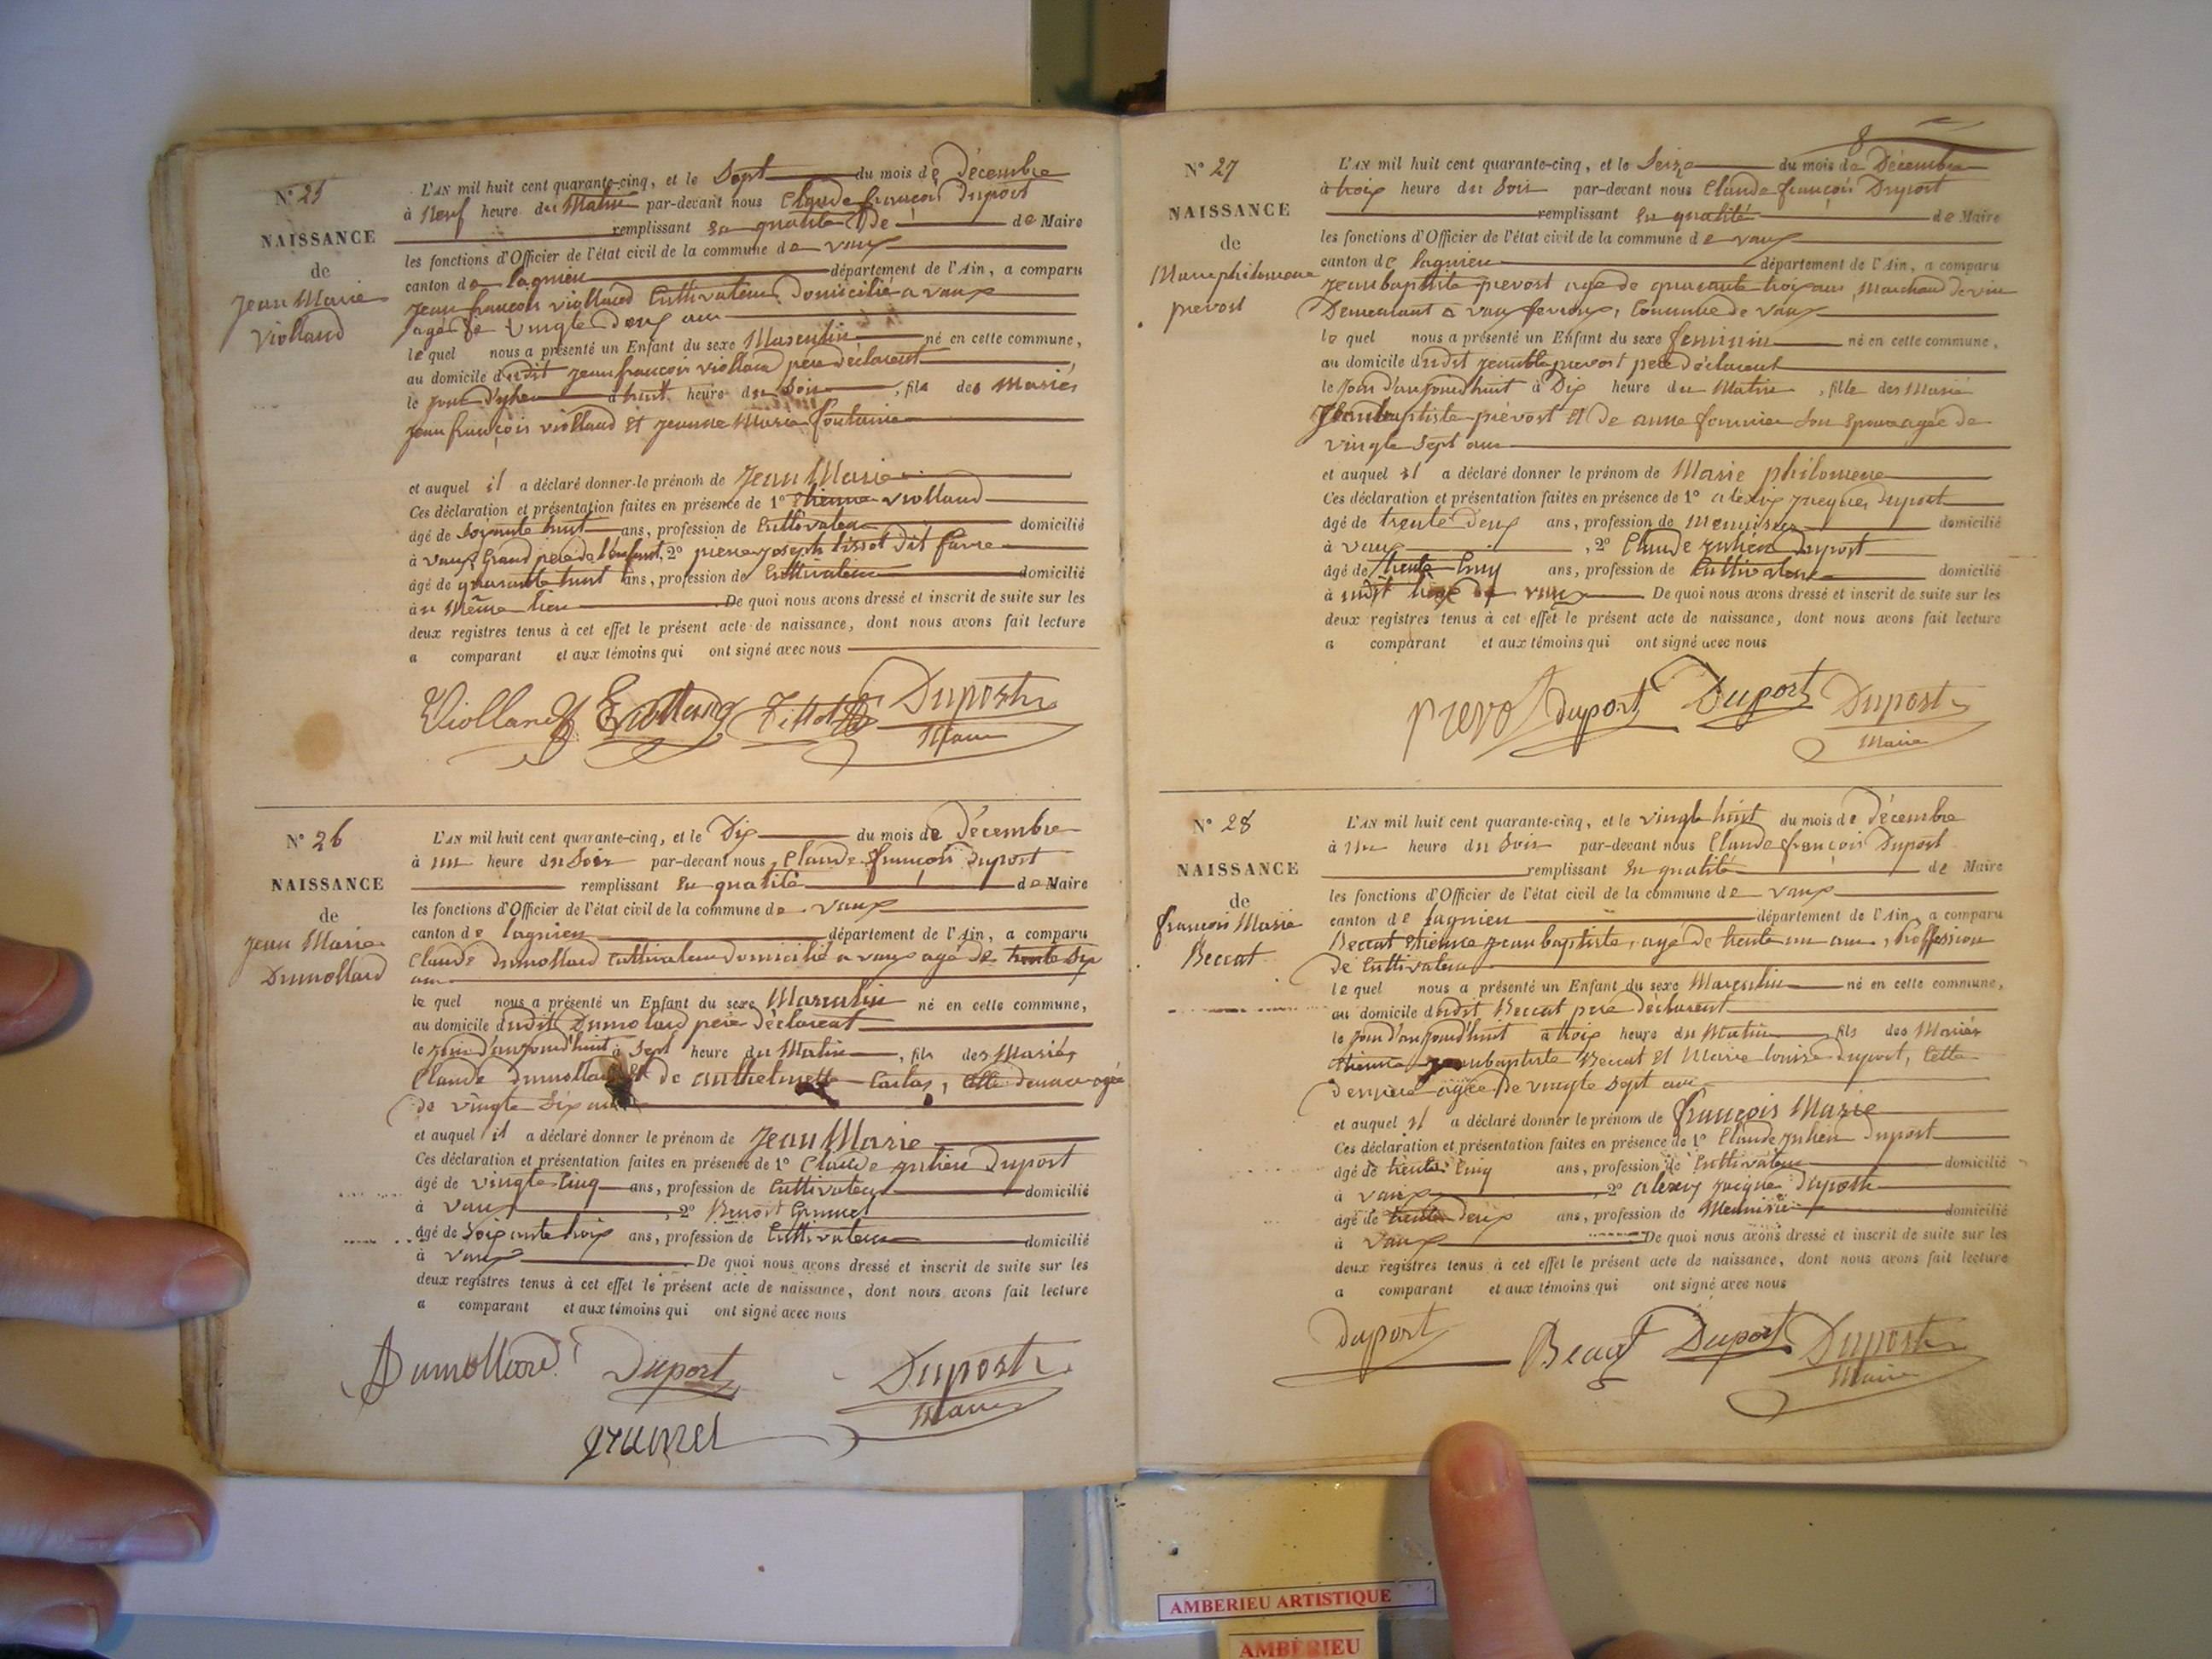 N° 25
NAISSANCE
de
Jean Marie
Violland
L'AN mil huit cent quarante-cinq, et le Sept du mois de Décembre
à Neuf heure du Matin par-devant nous Claude françois Duport
remplissant En qualité De de Maire
les fonctions d'Officier de l'état civil de la commune de vaux
canton de lagnieu département de l'Ain, a comparu
Jean françois violland Cultivateur Domicilié a vaux
agé de vingte Deux ans
le quel nous a présenté un Enfant du sexe Masculin né en cette commune,
au domicile dudit jean françois violland pere déclarent
le jour d'yher à huit heure du Soir, fils des Mariés
jean françois violland Et jeanne Marie fontaine
et auquel il a déclaré donner le prénom de Jean Marie
Ces déclaration et présentation faites en présence de 1° Etienne violland
âgé de Soixante huit ans, profession de Cultivateur domicilié
à vaux Grand pere de l'enfant, 2° pierre joseph tissot dit favre
âgé de quarante huit ans, profession de Cultivateur domicilié
au Même lieu De quoi nous avons dressé et inscrit de suite sur les
deux registres tenus à cet effet le présent acte de naissance, dont nous avons fait lecture
a comparant et aux témoins qui ont signé avec nous
Violland E violland Tissot Duport
Maire
N° 26
NAISSANCE
de
Jean Marie
Dumollard
L'AN mil huit cent quarante-cinq, et le Dix du mois de Décembre
à une heure du Soir par-devant nous, Claude françois Duport
remplissant En qualité de Maire
les fonctions d'Officier de l'état civil de la commune de vaux
canton de lagnieu département de l'Ain, a comparu
Claude dumollard Cultivateur domicilié a vaux agé de trente Six
ans
le quel nous a présenté un Enfant du sexe Masculin né en cette commune,
au domicile dudit Dumolard pere déclarent
le jour d'aujourd'huit à Sept heure du Matin, fils des Mariés
Claude dumollard Et de anthelmette, Cette agée
de vingte Six ans
et auquel il a déclaré donner le prénom de Jean Marie
Ces déclaration et présentation faites en présence de 1° Claude julien Duport
âgé de vingte Cinq ans, profession de Cultivateur domicilié
à vaux, 2° Benoit Grumel
âgé de Soixante troix ans, profession de Cultivateur domicilié
à vaux De quoi nous avons dressé et inscrit de suite sur les
deux registres tenus à cet effet le présent acte de naissance, dont nous avons fait lecture
a comparant et aux témoins qui ont signé avec nous
Dumollard Duport Duport
Maire
grumel
8
N° 27
NAISSANCE
de
Marie philomene
prevost
L'AN mil huit cent quarante-cinq, et le Seize du mois de Décembre
à troix heure du Soir par-devant nous Claude françois Duport
remplissant En qualité de Maire
les fonctions d'Officier de l'état civil de la commune de vaux
canton de lagnieu département de l'Ain, a comparu
jean baptiste prevost agé de quarante troix ans, Marchand de vin
Demeurant a vaux fevroux, Commune de vaux
le quel nous a présenté un Enfant du sexe feminin né en cette commune,
au domicile dudit jean bte prevost pere déclarent
le jour d'aujourd'huit à Dix heure du Matin, fille des Marié
Jean baptiste prevost Et de anne fournier Son Epouse agée de
vingte Sept ans
et auquel il a déclaré donner le prénom de Marie philomene
Ces déclaration et présentation faites en présence de 1° alexix jacques Duport
âgé de trente deux ans, profession de Menuisier domicilié
à vaux, 2° Claude julien Duport
âgé de trente Cinq ans, profession de Cultivateur domicilié
à vaux De quoi nous avons dressé et inscrit de suite sur les
deux registres tenus à cet effet le présent acte de naissance, dont nous avons fait lecture
a comparant et aux témoins qui ont signé avec nous
prevost duport Duport Duport
Maire
N° 28
NAISSANCE
de
françois Marie
Beccat
L'AN mil huit cent quarante-cinq, et le vingte huit du mois de Décembre
à une heure du Soir par-devant nous Claude françois Duport
remplissant En qualité de Maire
les fonctions d'Officier de l'état civil de la commune de vaux
canton de lagnieu département de l'Ain, a comparu
Beccat Etienne jean baptiste, agé de trente un ans, Proffession
de Cultivateur
le quel nous a présenté un Enfant du sexe Masculin né en cette commune,
au domicile dudit Beccat pere déclarent
le jour d'aujourd'huit à troix heure du Matin fils des Mariés
Etienne jean baptiste Beccat Et Marie louise Duport, Cette
derniere agée de vingte Sept ans
et auquel il a déclaré donner le prénom de françois Marie
Ces déclaration et présentation faites en présence de 1° Claude julien Duport
âgé de trente Cinq ans, profession de Cultivateur domicilié
à vaux, 2° alexix jacques Duport
âgé de trente Deux ans, profession de Menuisier domicilié
à vaux De quoi nous avons dressé et inscrit de suite sur les
deux registres tenus à cet effet le présent acte de naissance, dont nous avons fait lecture
a comparant et aux témoins qui ont signé avec nous
duport Beccat Duport Duport
Maire
AMBERIEU ARTISTIQUE
AMBÉRIEU